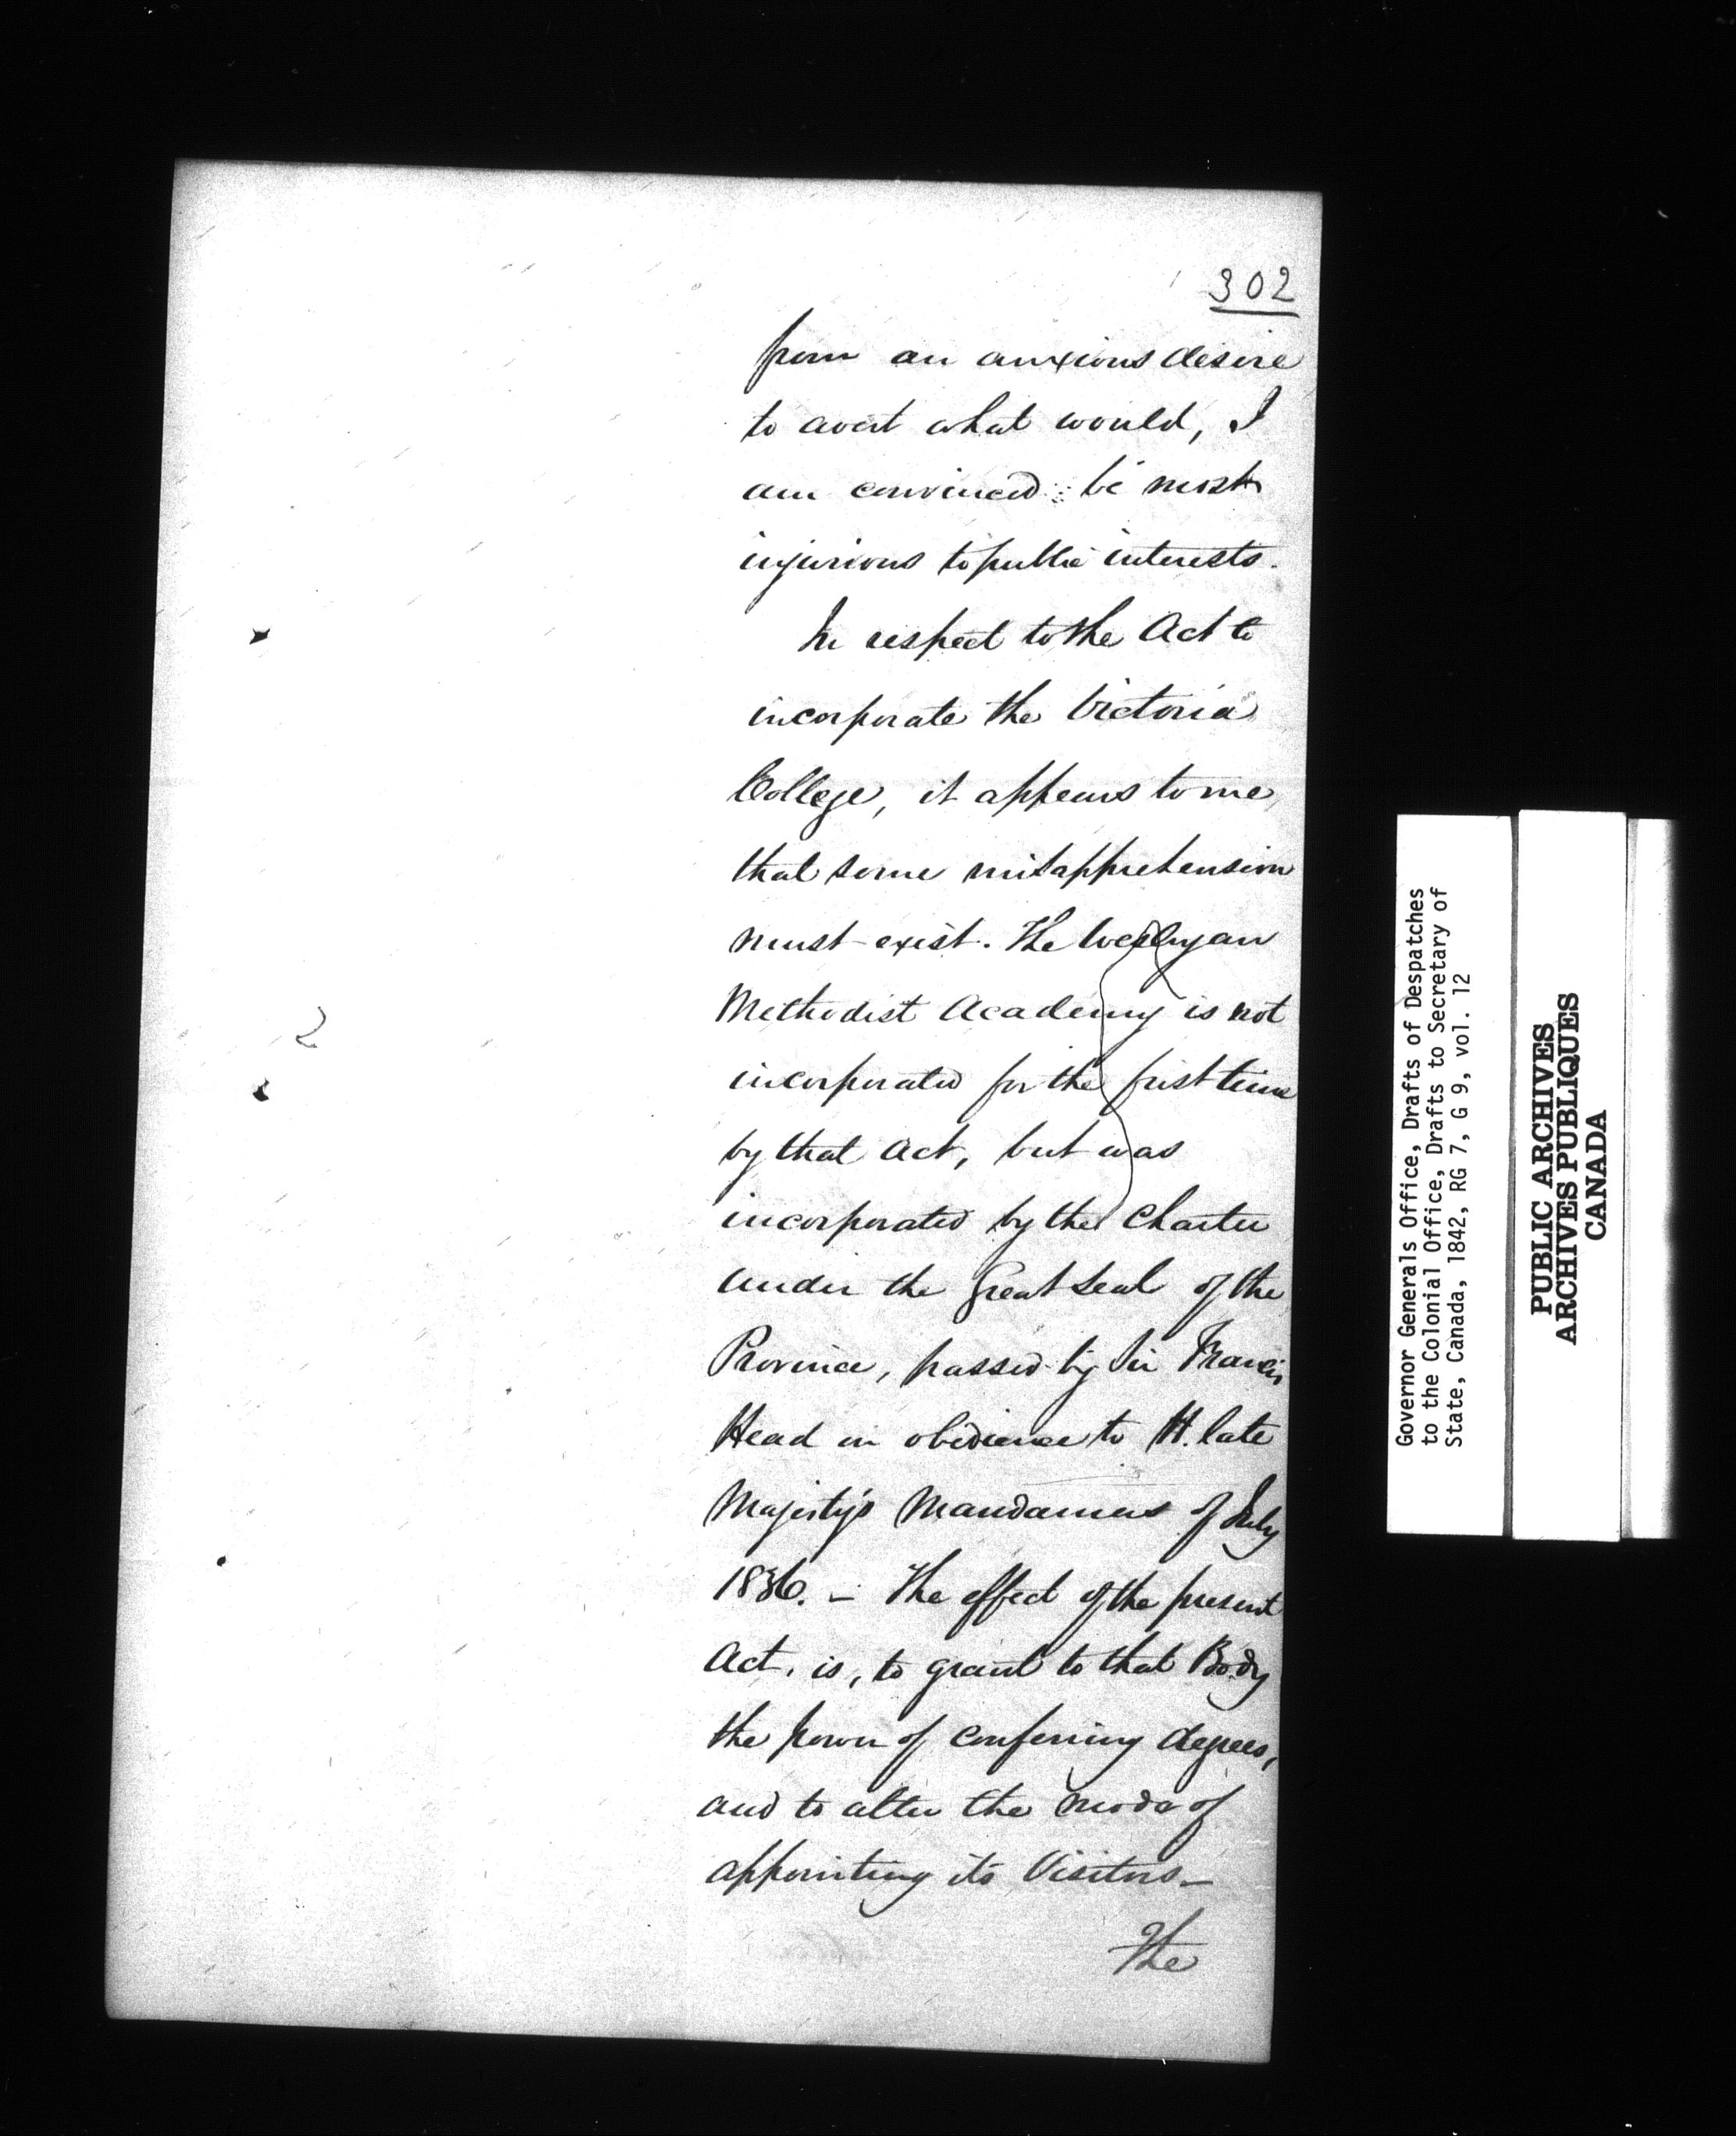 302
from an anxious desire
to avert what would, I
am convinced be most
injurious to public interests.
In respect to the Act to
incorporate the Victoria
College, it appears to me,
that some misapprehension
must exist. The Wesleyan
Methodist Academy is not
incorporated for the first time
by that Act, but was
incorporated by the Charter
under the Great Seal of the
Province, passed by Sir Francis
Head in obedience to H. late
Majesty's Mandamus of July
1836. – The effect of the present
Act, is, to grant to that Body
the power of conferring degrees,
and to alter the mode of
appointing its Visitors –
The
Governor Generals Office, Drafts of Despatches
to the Colonial Office, Drafts to Secretary of
State, Canada, 1842, RG 7, G 9, vol. 12
PUBLIC ARCHIVES
ARCHIVES PUBLIQUES
CANADA